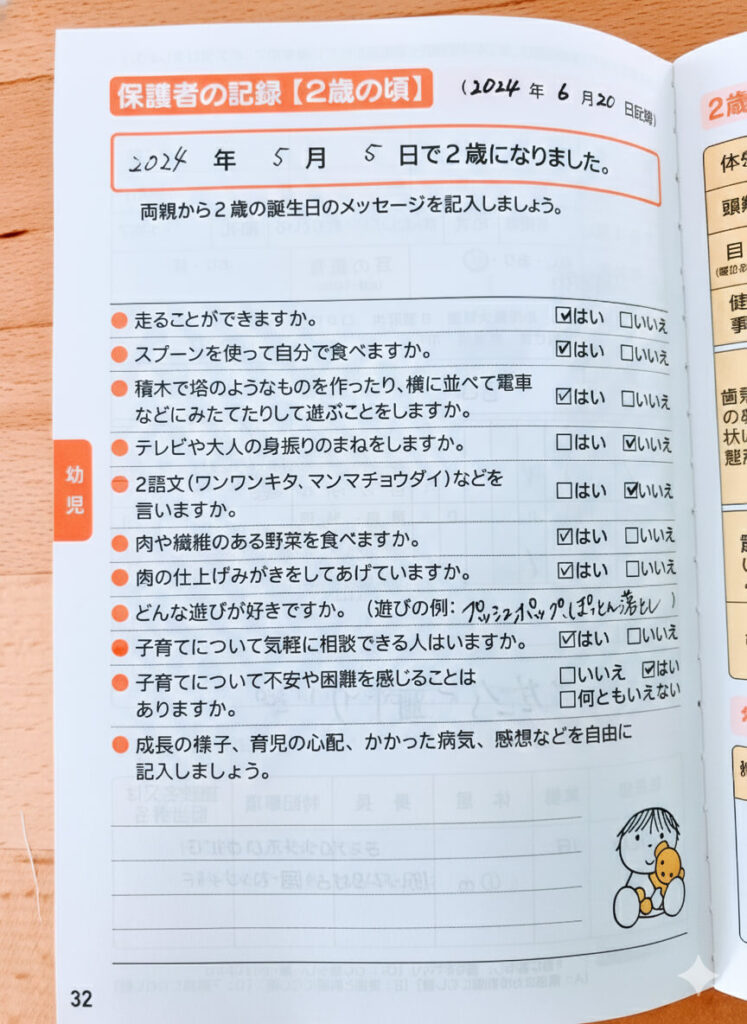 保護者の記録【2歳の頃】 (2024 年 6 月 20 日記録)
2024 年 5 月 5 日で2歳になりました。
両親から2歳の誕生日のメッセージを記入しましょう。
●走ることができますか。 ☑はい □いいえ
●スプーンを使って自分で食べますか。 ☑はい □いいえ
●積木で塔のようなものを作ったり、横に並べて電車
などにみたてたりして遊ぶことをしますか。 ☑はい □いいえ
●テレビや大人の身振りのまねをしますか。 □はい ☑いいえ
●2語文(ワンワンキタ、マンマチョウダイ)などを
言いますか。 □はい ☑いいえ
●肉や繊維のある野菜を食べますか。 ☑はい □いいえ
●歯の仕上げみがきをしてあげていますか。 ☑はい □いいえ
●どんな遊びが好きですか。(遊びの例: プッシュポップ、ぽっとん落とし )
●子育てについて気軽に相談できる人はいますか。 ☑はい □いいえ
●子育てについて不安や困難を感じることは □いいえ ☑はい
ありますか。 □何ともいえない
●成長の様子、育児の心配、かかった病気、感想などを自由に
記入しましょう。
幼児
32
2歳
目